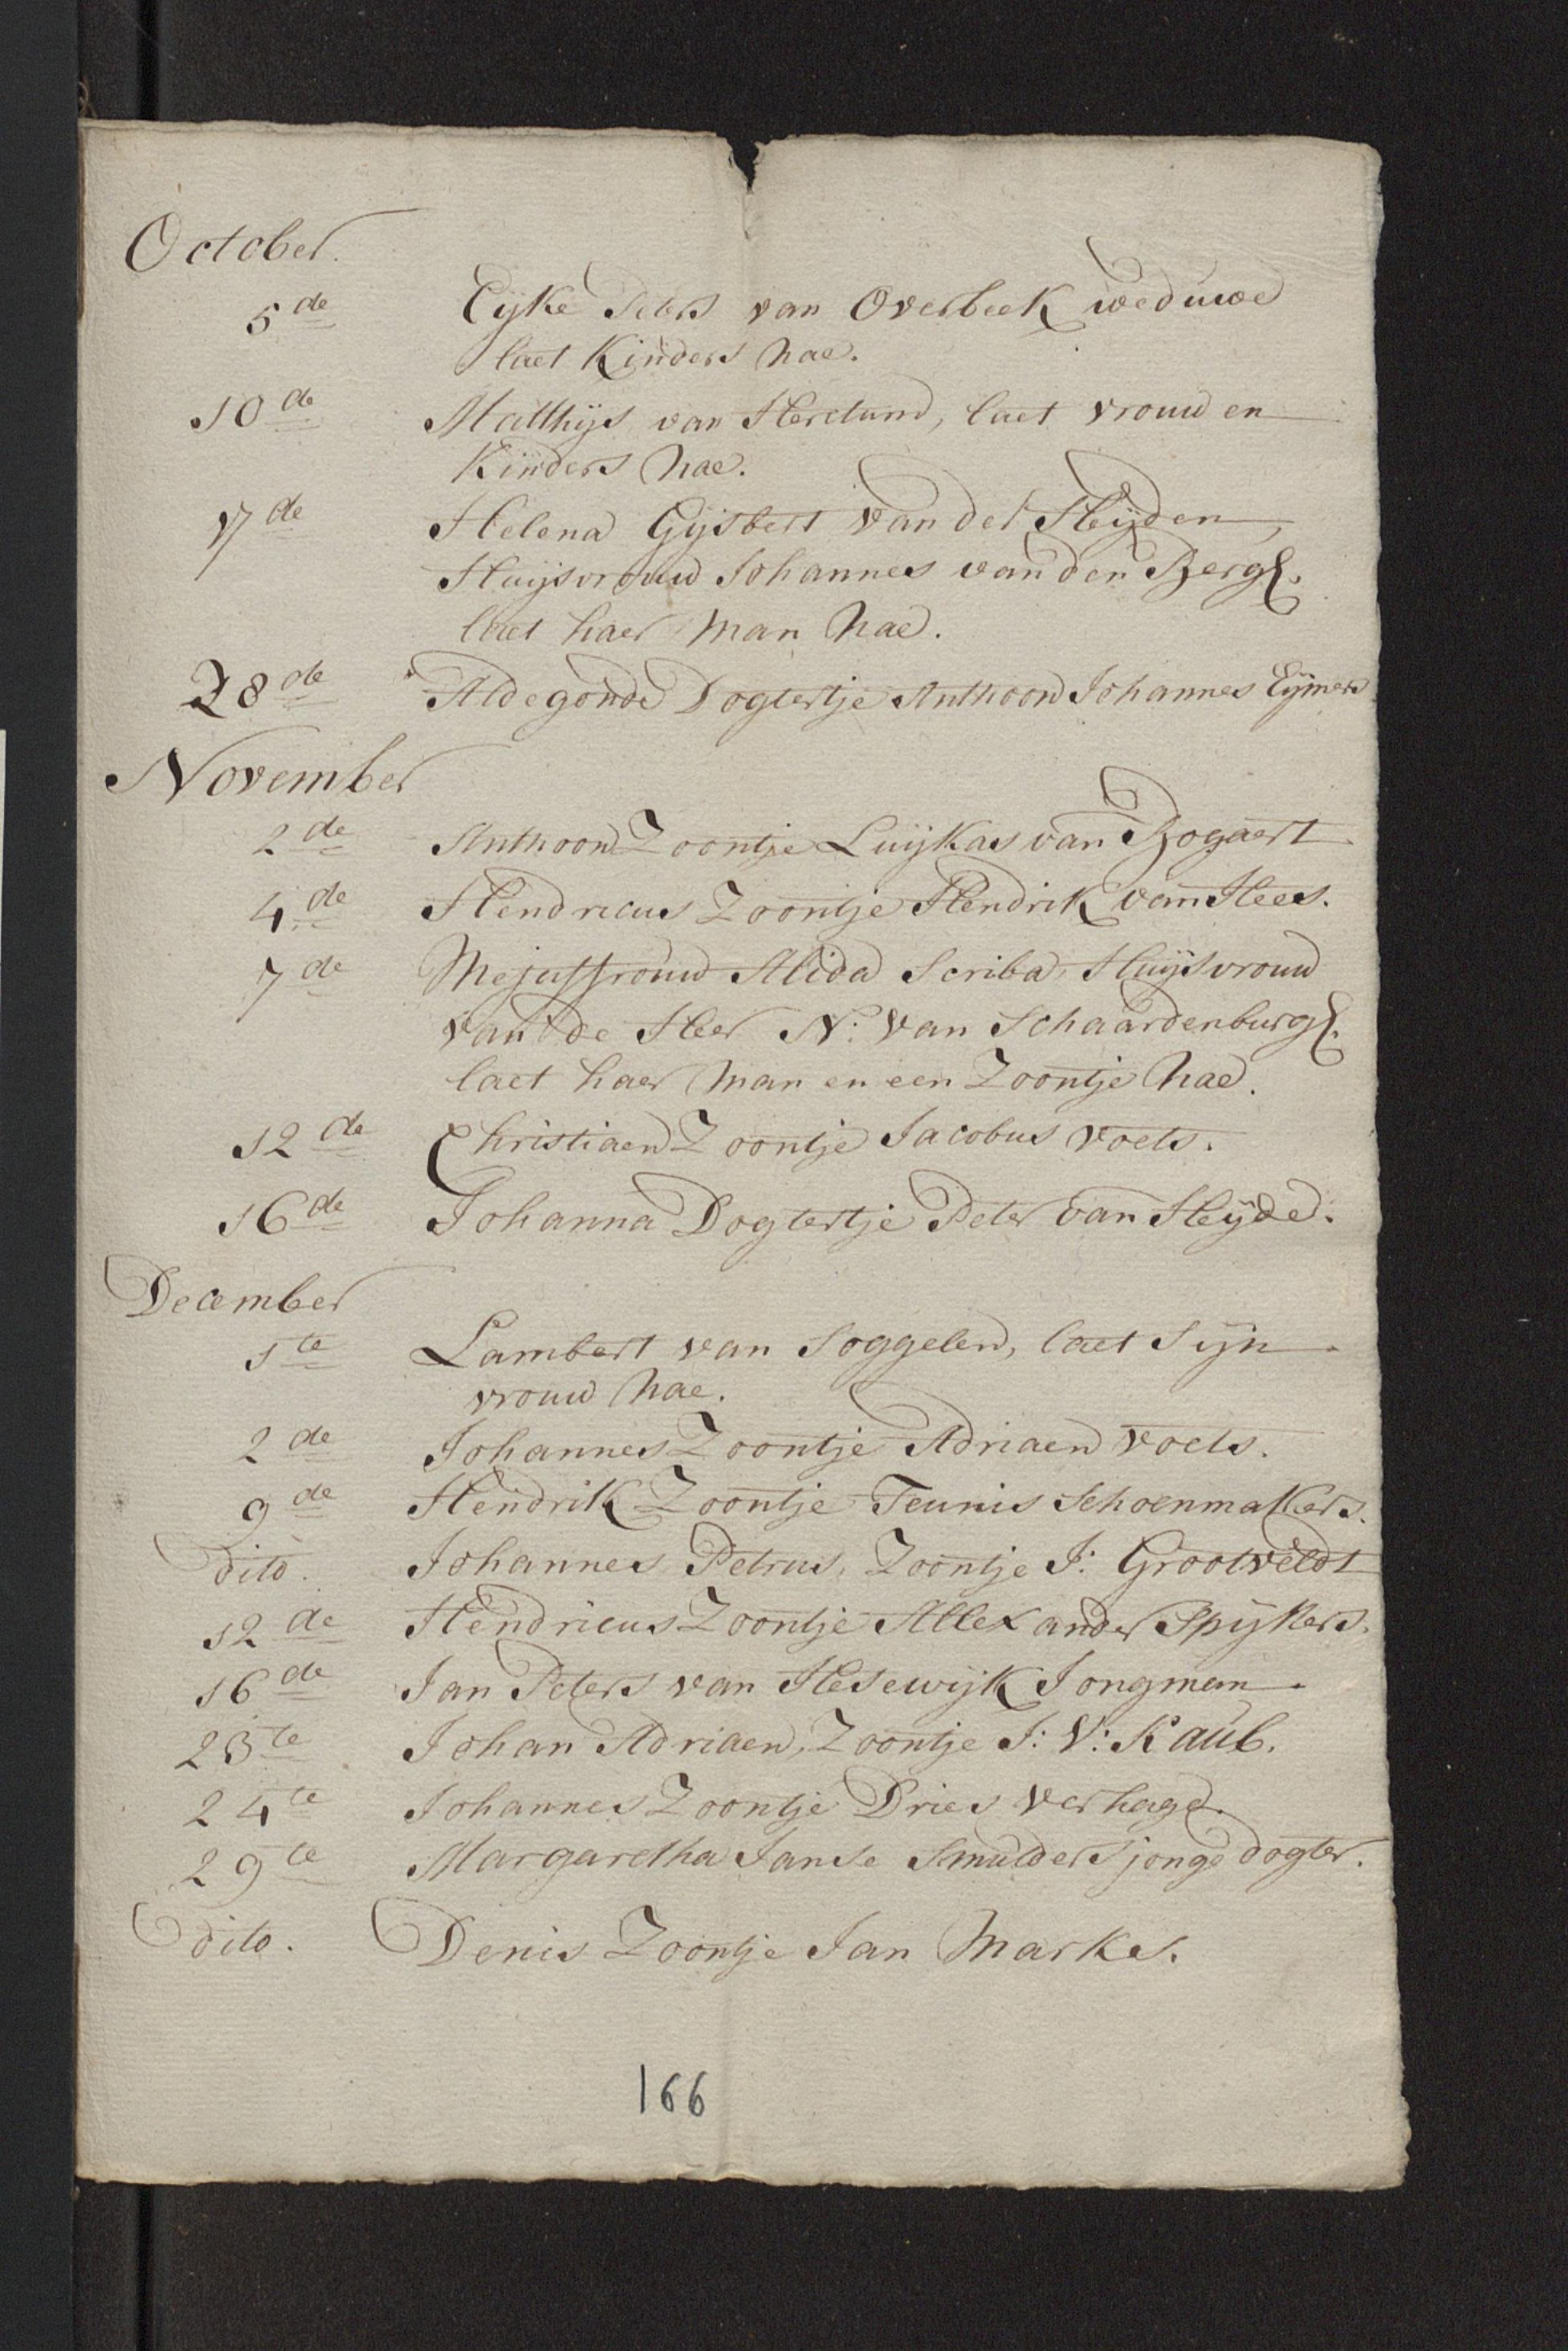 October.
5de Eijke Peters van Overbeek weduwe
laet Kinders nae.
10de Matthijs van Herelund, laet vrouw en
Kinders nae.
17de Helena Gijsbert van der Heijden,
Huijsvrouw Johannes van den Bergh.
laet haer man nae.
28de Aldegonde Dogtertje Anthoon Johannes Eijmers
November
2de Anthoon Zoontje Luijkas van Bogaert.
4de Hendricus Zoontje Hendrik van Hees.
7de Mejuffrouw Alida Scriba, Huijsvrouw
van de Heer N: van Schaardenburgh.
laet haer man en een Zoontje nae.
12de Christiaen Zoontje Jacobus Voets.
16de Johanna Dogtertje Peter van Heijde.
December
1te Lambert van Soggelen, laet Sijn
vrouw nae.
2de Johannes Zoontje Adriaen Voets.
9de Hendrik Zoontje Teunis Schoenmakers.
dito. Johannes Petrus, Zoontje J: Grootveldt
12de Hendricus Zoontje Allexander Spijkers.
16de Jan Peters van Hesewijk Jongman.
23te Johan Adriaen, Zoontje J: V: Kaub.
24te Johannes Zoontje Dries Verhage.
29te Margaretha Janse Smulders jonge dogter.
dito. Denis Zoontje Jan Markes.
166